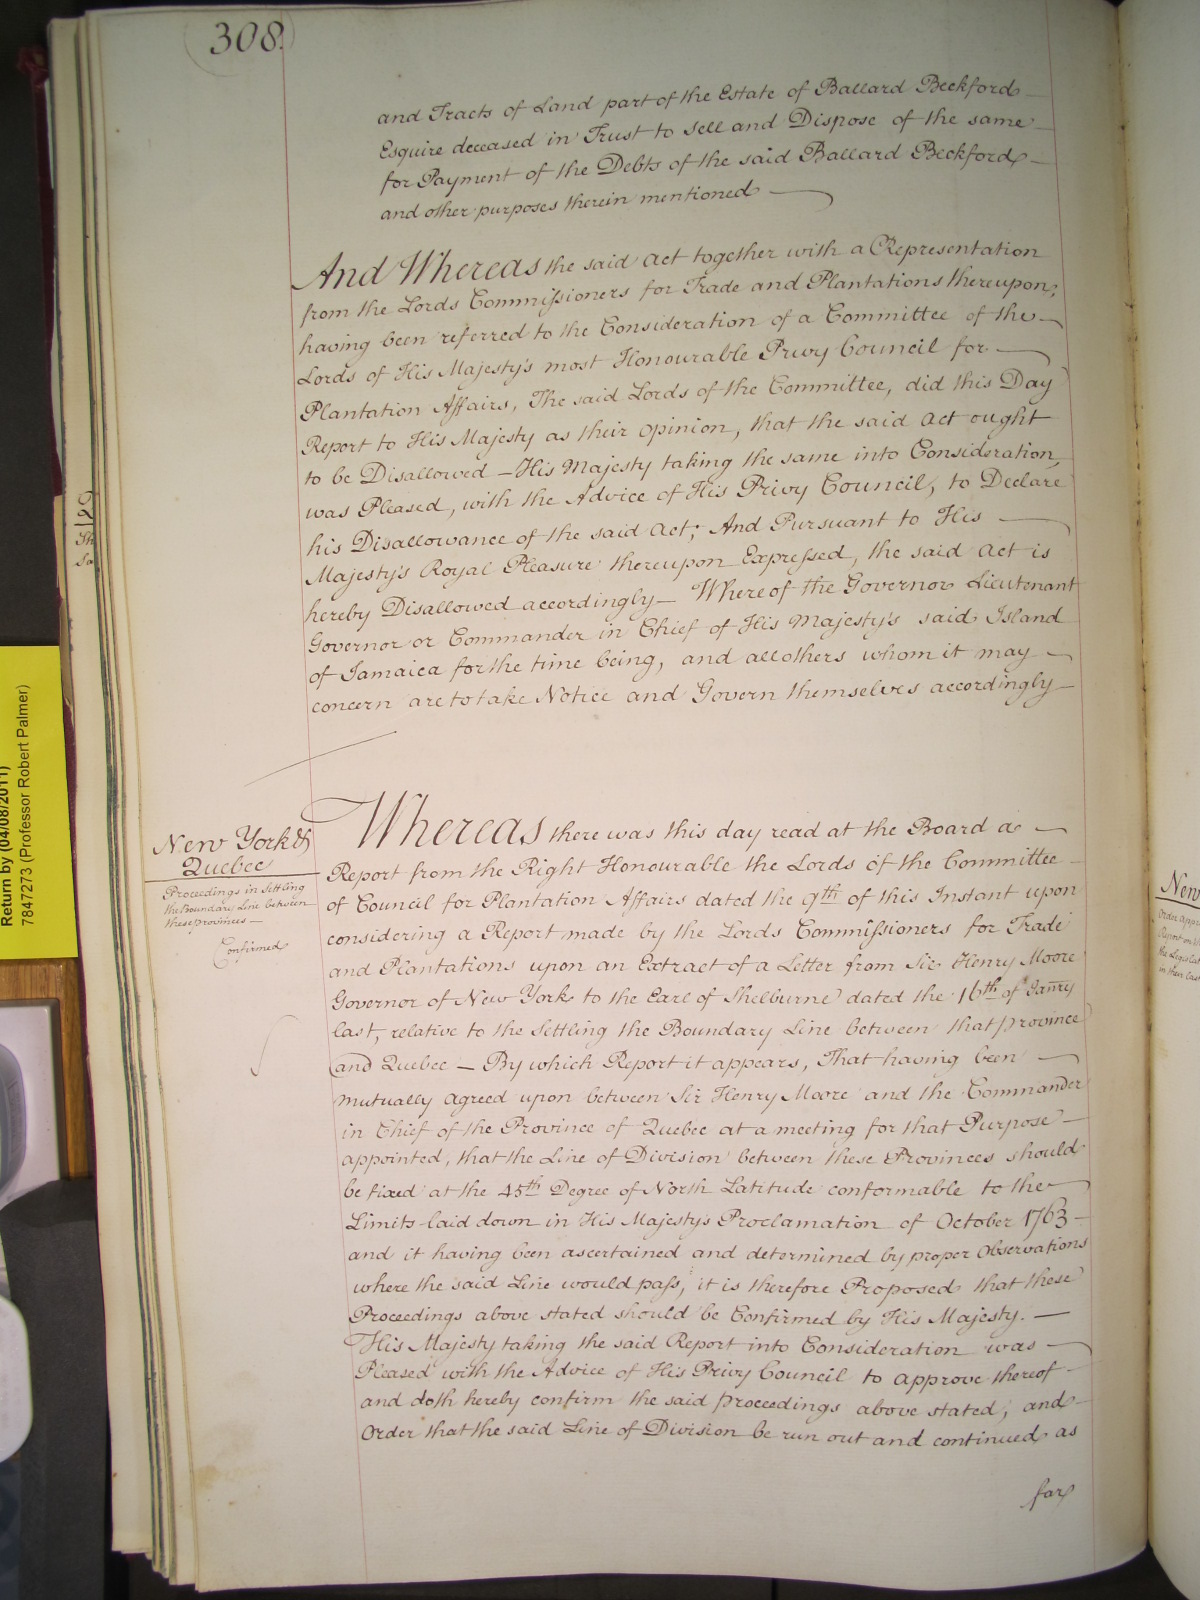 308.
and Tracts of Land part of the Estate of Ballard Beckford
Esquire deceased in Trust to sell and Dispose of the same
for Payment of the Debts of the said Ballard Beckford
and other purposes therein mentioned
And Whereas the said Act together with a Representation
from the Lords Commissioners for Trade and Plantations thereupon,
having been referred to the Consideration of a Committee of the
Lords of His Majesty's most Honourable Privy Council for
Plantation Affairs, The said Lords of the Committee, did this Day
Report to His Majesty as their opinion, that the said Act ought
to be Disallowed — His Majesty taking the same into Consideration,
was Pleased, with the Advice of His Privy Council, to Declare
his Disallowance of the said Act; And Pursuant to His
Majesty's Royal Pleasure thereupon Expressed, the said Act is
hereby Disallowed accordingly — Whereof the Governor Lieutenant
Governor or Commander in Chief of His Majesty's said Island
of Jamaica for the time being, and all others whom it may
concern are to take Notice and Govern themselves accordingly
New York &
Quebec
Proceedings in Settling
the Boundary Line between
these provinces —
Confirmed
Whereas there was this day read at the Board a
Report from the Right Honourable the Lords of the Committee
of Council for Plantation Affairs dated the 9th of this Instant upon
considering a Report made by the Lords Commissioners for Trade
and Plantations upon an Extract of a Letter from Sir Henry Moore
Governor of New York to the Earl of Shelburne dated the 16th of Janry
last, relative to the Settling the Boundary Line between that province
and Quebec — By which Report it appears, That having been
mutually agreed upon between Sir Henry Moore and the Commander
in Chief of the Province of Quebec at a meeting for that Purpose
appointed, that the Line of Division between these Provinces should
be fixed at the 45th Degree of North Latitude conformable to the
Limits laid down in His Majesty's Proclamation of October 1763
and it having been ascertained and determined by proper Observations
where the said Line would pass, it is therefore Proposed that these
Proceedings above stated should be Confirmed by His Majesty. —
His Majesty taking the said Report into Consideration was
Pleased with the Advice of His Privy Council to approve thereof
and doth hereby confirm the said proceedings above stated, and
Order that the said Line of Division be run out and continued as
far
Return by (04/08/2011)
7847273 (Professor Robert Palmer)
129
New